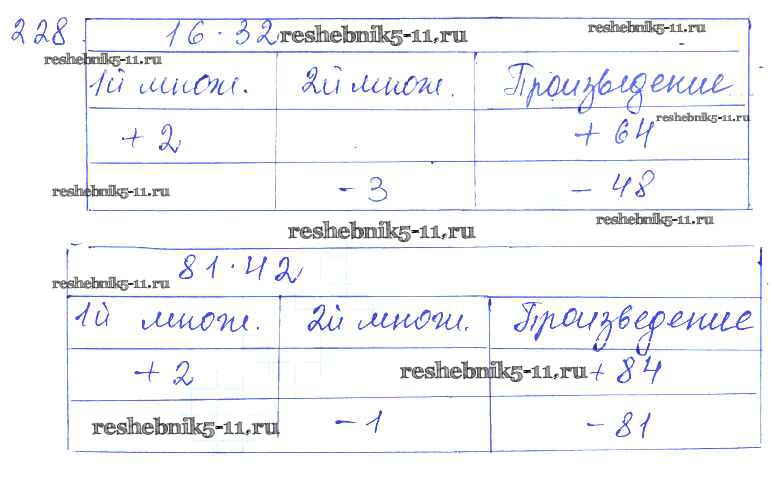 228. 16 · 32 reshebnik5-11,ru reshebnik5-11.ru
reshebnik5-11.ru
1й множ. 2й множ. Произведение
reshebnik5-11.ru
+ 2 + 64
reshebnik5-11.ru - 3 - 48
reshebnik5-11,ru reshebnik5-11.ru
81 · 42
reshebnik5-11.ru
1й множ. 2й множ. Произведение
+ 2 reshebnik5-11,ru + 84
reshebnik5-11,ru - 1 - 81